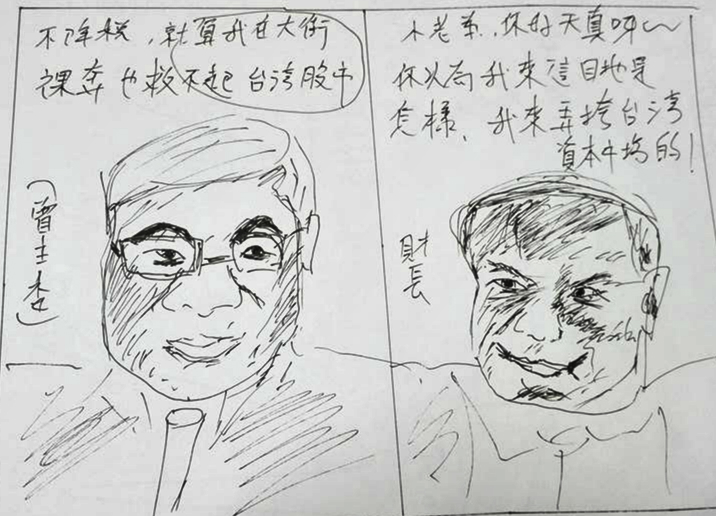 不降稅，就算我在大街
裸奔也救不起台湾股市
(曾主委)
小老弟，你好天真呀～
你以為我來這目地是
怎樣、我來弄垮台湾
資本市場的！
財長